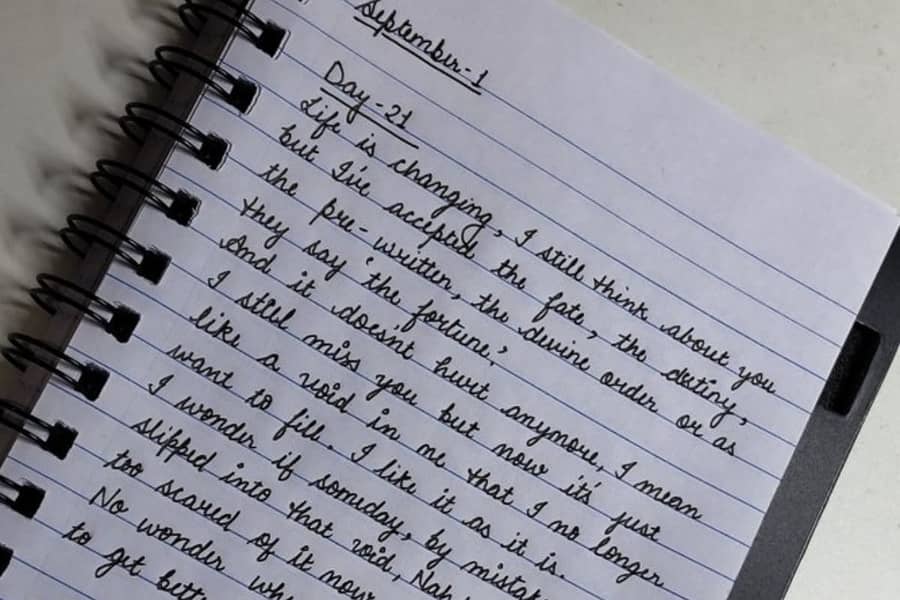 September-1
Day-21
Life is changing, I still think about you
but I've accepted the fate, the destiny,
the pre-written, the devine order or as
they say 'the fortune'.
And it does'nt hurt anymore, I mean
I still miss you but now it's just
like a void in me that I no longer
want to fill. I like it as it is.
I wonder if someday, by
slipped into that void, Nah
too scared of it now
No wonder
to get